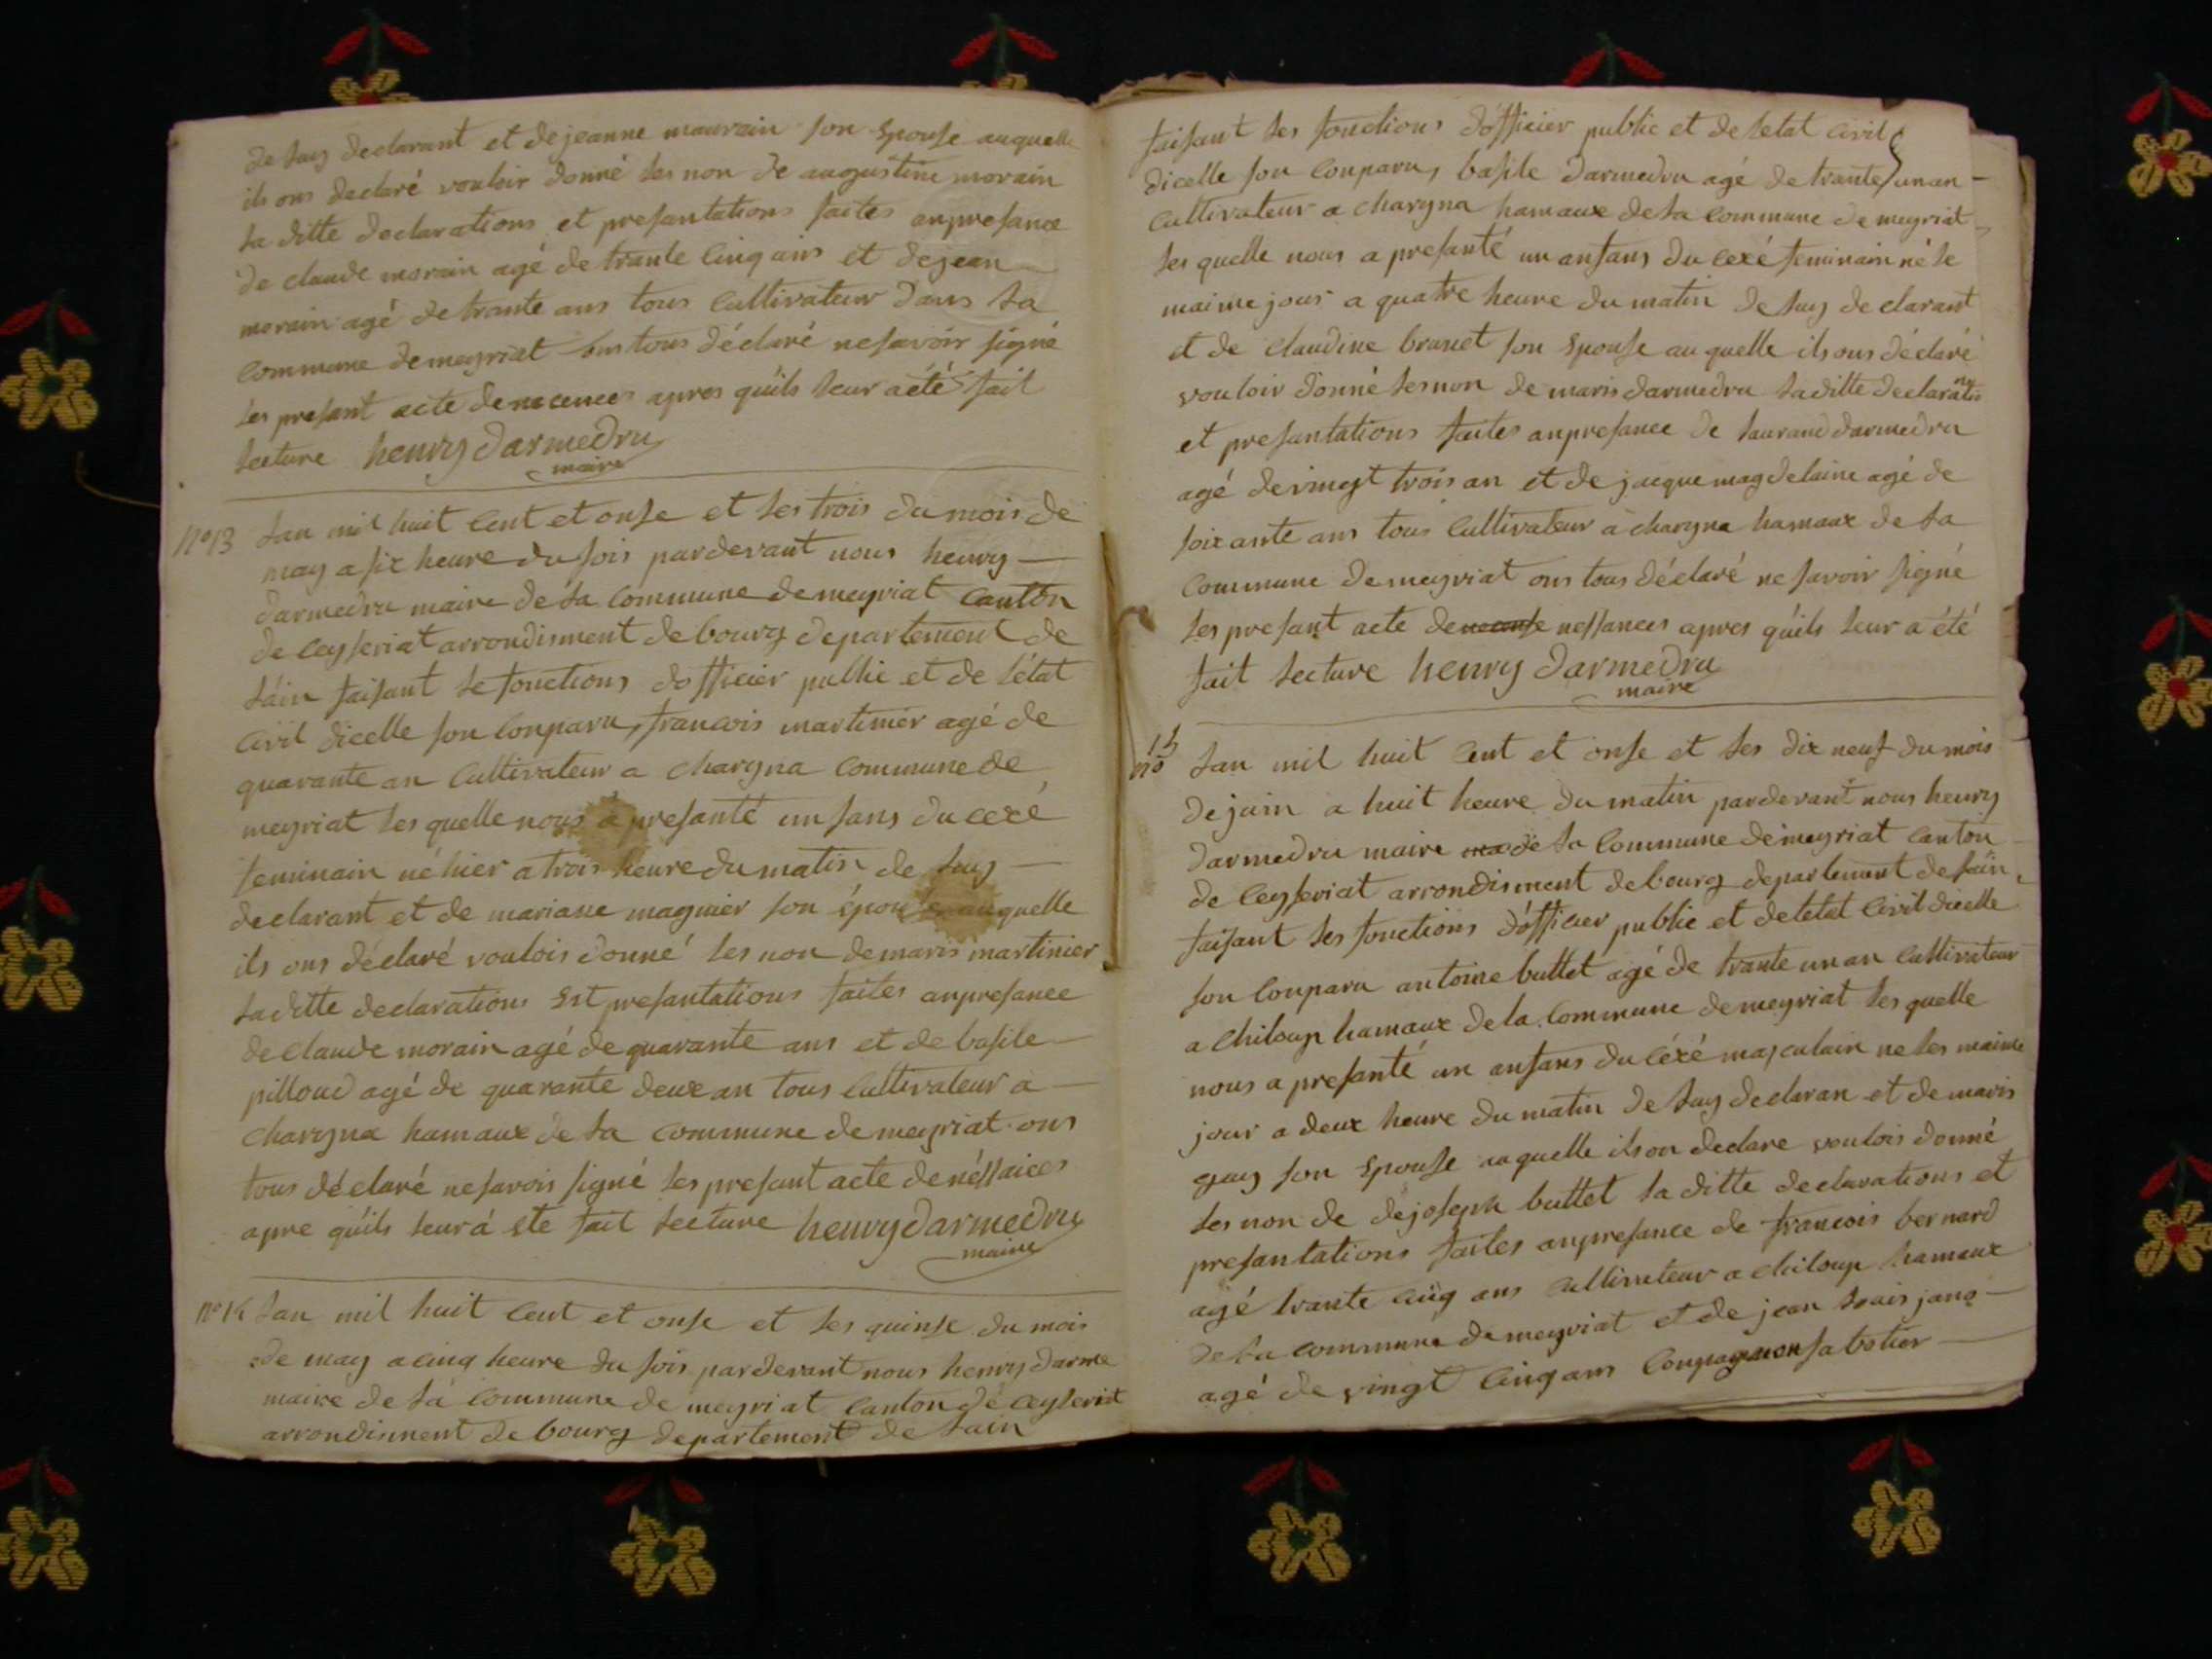 de luy declarant et de jeanne mauvain son Epouse auquelle
ils ons declaré vouloir donné les non de augustine morain
la ditte declarations et presantations faites anpresance
de claude morain agé de trante cinq ans et de jean
morain agé de trante ans tous cultivateur dans la
commune de meyriat ons tous déclaré ne savoir signé
les presant acte de nacences apres quils leur a été fait
lecture henry darmedru
maire
n° 13 lan mil huit cent et onse et les trois du mois de
may a six heure du soir pardevant nous henry
darmedru maire de la commune de meyriat canton
de ceyseriat arrondisment de bourg departement de
láin faisant le fonctions dofficier public et de létat
civil dicelle son conparu, francois martinier agé de
quarante an cultivateur a charyna commune de
meyriat les quelle nous a presanté un fans du cexé
feminain né hier a trois heure du matin de luy
declarant et de mariane magnier son épouse auquelle
ils ons déclaré voulois donné les non de maris martinier
la ditte declarations Est presantations faites anpresance
de claude morain agé de quarante ans et de basile
pilloud agé de quarante deux an tous cultivateur a
charyna hamaux de la commune de meyriat ons
tous déclaré ne savois signé les presant acte de néssaices
apre quils leur á Eté fait lecture henry darmedru
maire
n° 14 lan mil huit cent et onse et les quinse du mois
de may a cinq heure du soir pardevant nous henry darme
maire de la commune de meyriat canton de ceyseriat
arrondisment de bourg departement de lain
faisant les fonctions dofficier public et de letat civil
dicelle son conparu, basile darmedru agé de trante un an
cultivateur a charyna hamaux de la commune de meyriat
les quelle nous a presanté un anfans du cexé feminain né le
maime jour a quatre heure du matin de luy declarant
et de claudine brunet son Epouse au quelle ils ons déclaré
vouloir donné les non de maris darmedru la ditte declarations
et presantations faites anpresance de laurand darmedru
agé de vingt trois an et de jacque magdelaine agé de
soixante ans tous cultivateur a charyna hamaux de la
commune de meyriat ons tous déclaré ne savoir signé
les presant acte de necanse nessances apres quils leur a été
fait lecture henry darmedru
maire
n° 15 lan mil huit cent et onse et les dix neuf du mois
de juin a huit heure du matin pardevant nous henry
darmedru maire de la commune de meyriat canton
de ceyseriat arrondisment de bourg departement de lain
faisant les fonctions dofficier public et de letat civil dicelle
son conparu antoine buttet agé de trante un an cultivateur
a chiloup hamaux de la commune de meyriat les quelle
nous a presanté un anfans du céxé masculain ne les maime
jour a deux heure du matin de luy declaran et de maris
guy son Epouse auquelle ils on declare voulois donné
les non de de joseph buttet la ditte declarations et
presantations faites anpresance de francois bernard
agé trante cinq ans cultivateur a chiloup hamaux
de la commune de meyriat et de jean
agé de vingt cinq ans conpagnon sabotier